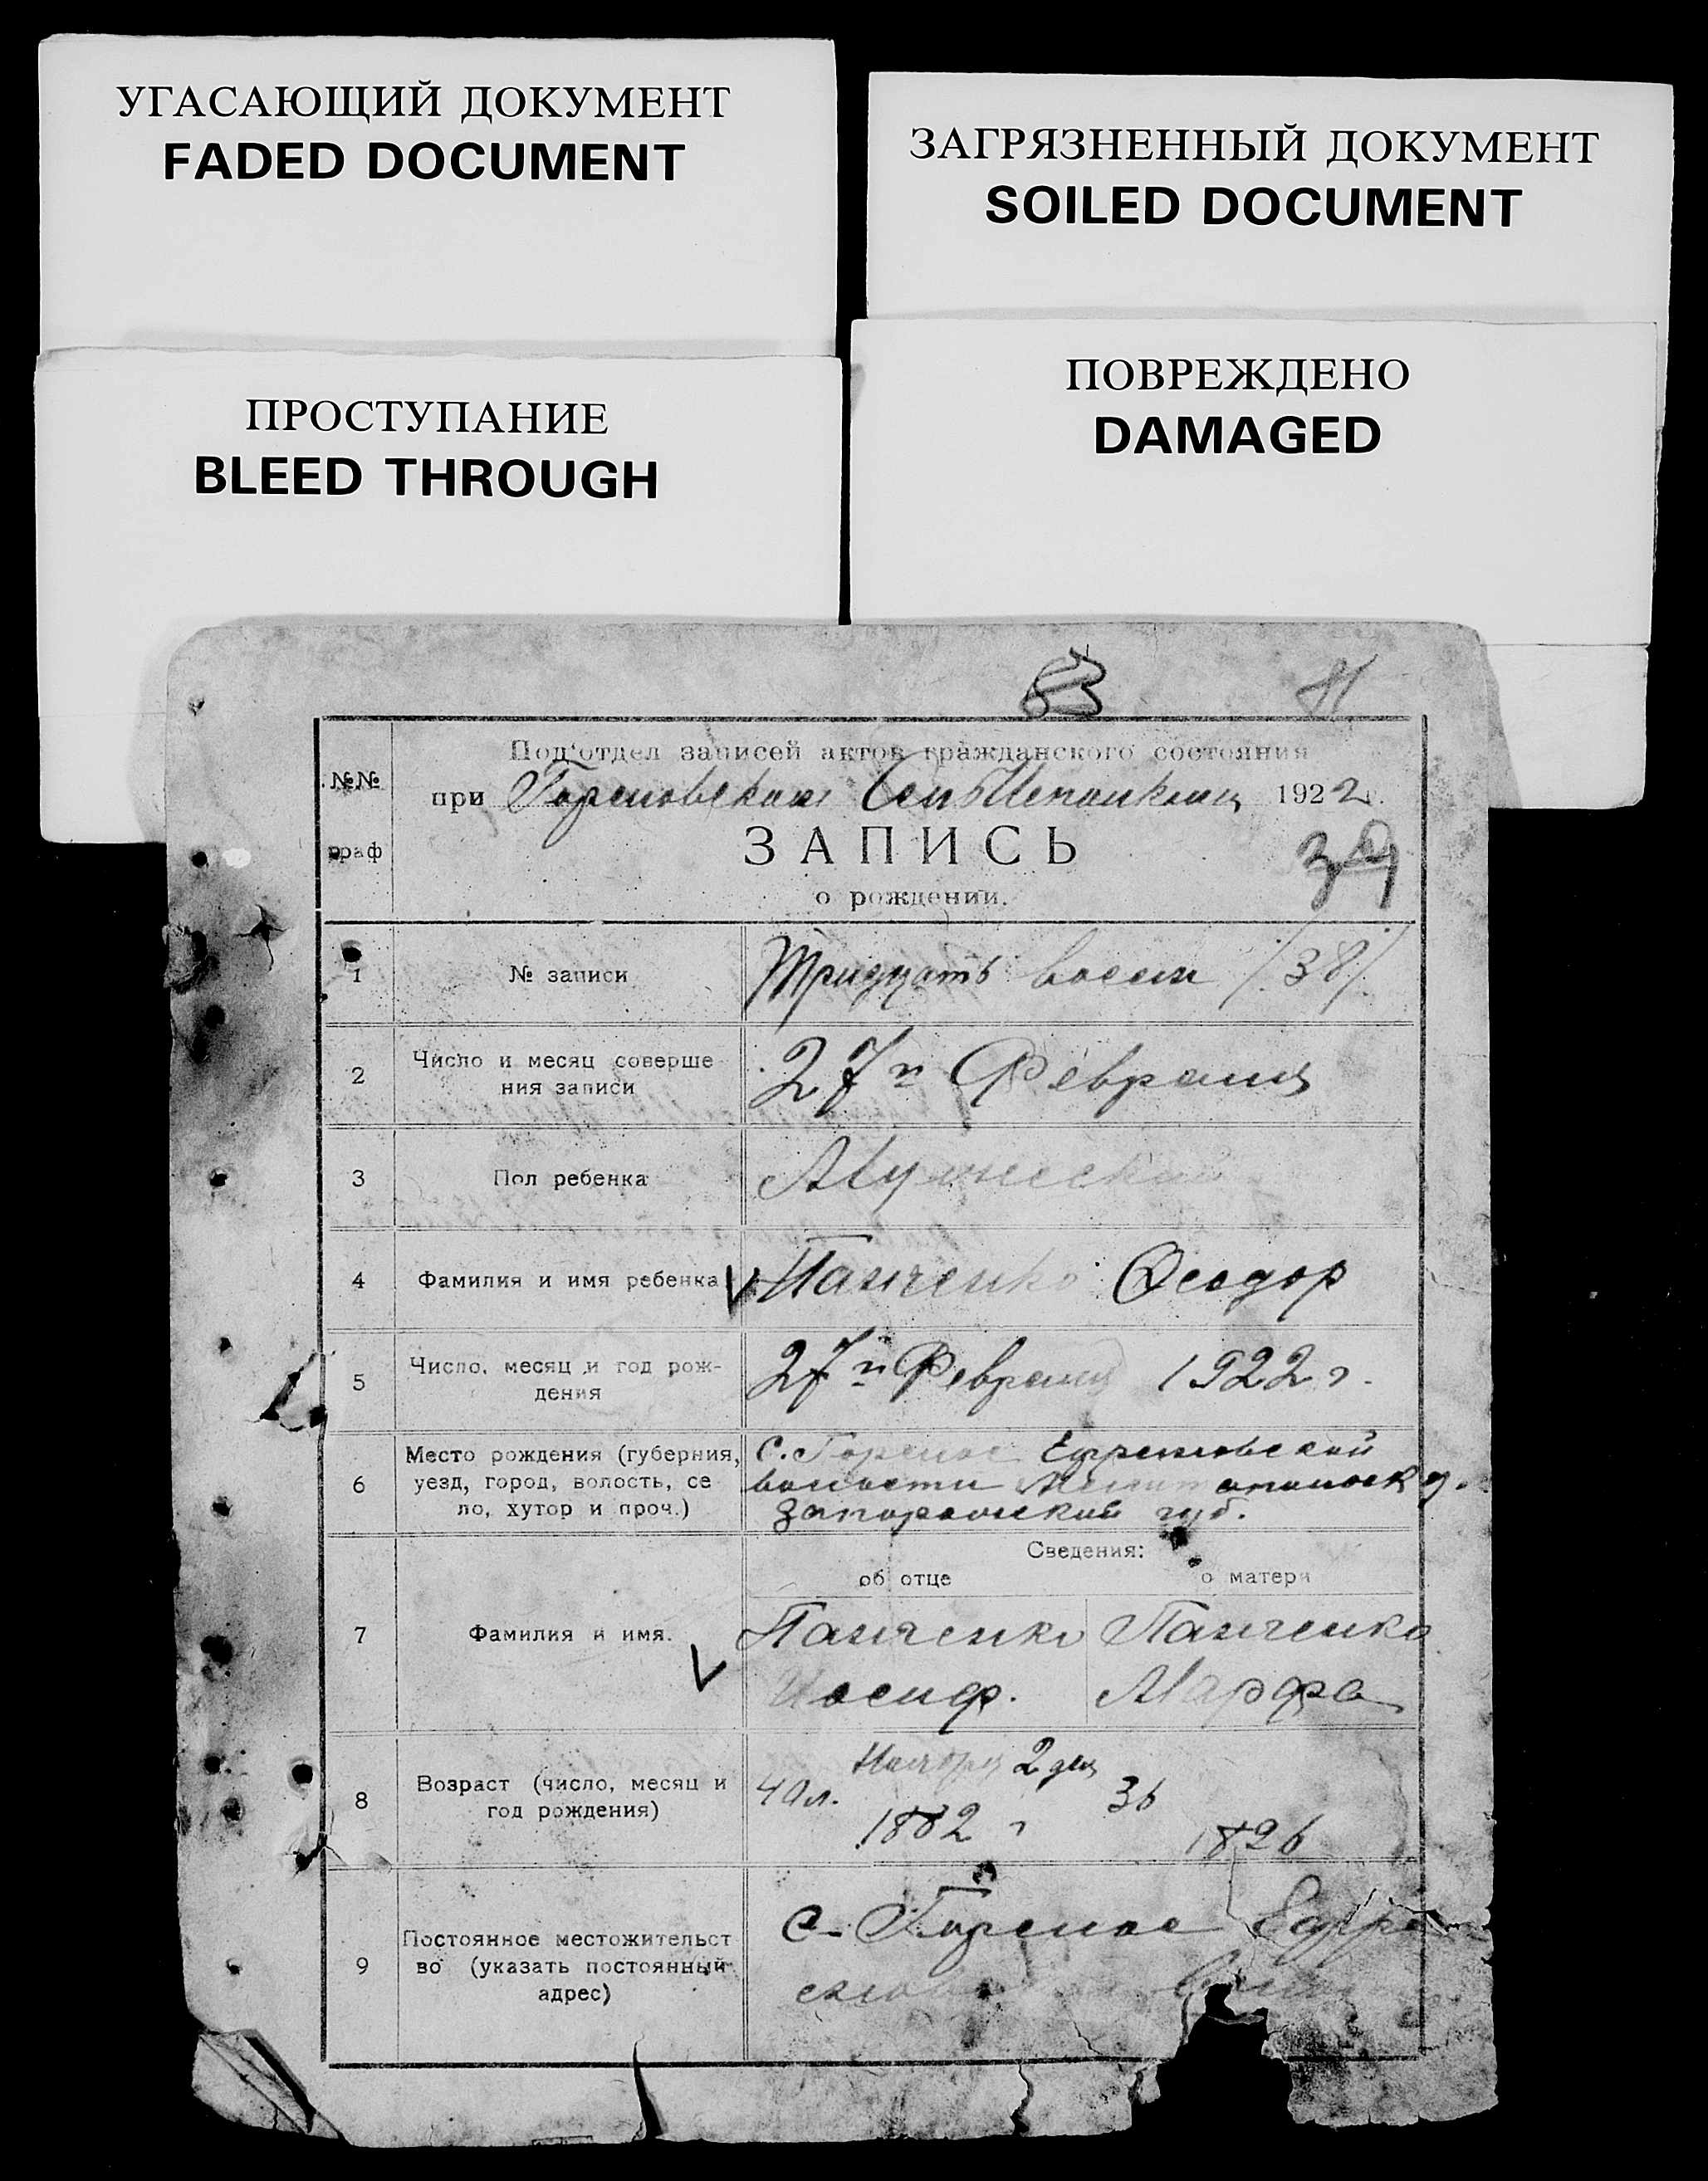 УГАСАЮЩИЙ ДОКУМЕНТ
FADED DOCUMENT
ЗАГРЯЗНЕННЫЙ ДОКУМЕНТ
SOILED DOCUMENT
ПРОСТУПАНИЕ
BLEED THROUGH
ПОВРЕЖДЕНО
DAMAGED
№№ граф
Под'отдел записей актов гражданского состояния
при 1922 г.
ЗАПИСЬ
о рождении.
1 № записи Тридцать восем /38/
2 Число и месяц соверше
ния записи 27го Февраля
3 Пол ребенка Мужеский
4 Фамилия и имя ребенка Панченко Феодор
5 Число, месяц и год рож-
дения 27го Февраля 1922 г.
6 Место рождения (губерния,
уезд, город, волость, се
ло, хутор и проч.)
с. Горелое Ефремовской
волости Мелитопольск у.
Запорожской губ.
Сведения:
об отце о матери
7 Фамилия и имя.
Панченко Панченко
Иосиф. Марфа
8 Возраст (число, месяц и
год рождения)
2 дня
40 л. 36
1882 г
9 Постоянное местожительст
во (указать постоянный
адрес)
с. Горелое Ефре